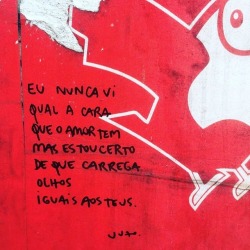 EU NUNCA VI
QUAL A CARA
QUE O AMOR TEM
MAS ESTOU CERTO
DE QUE CARREGA
OLHOS
IGUAIS AOS TEUS.